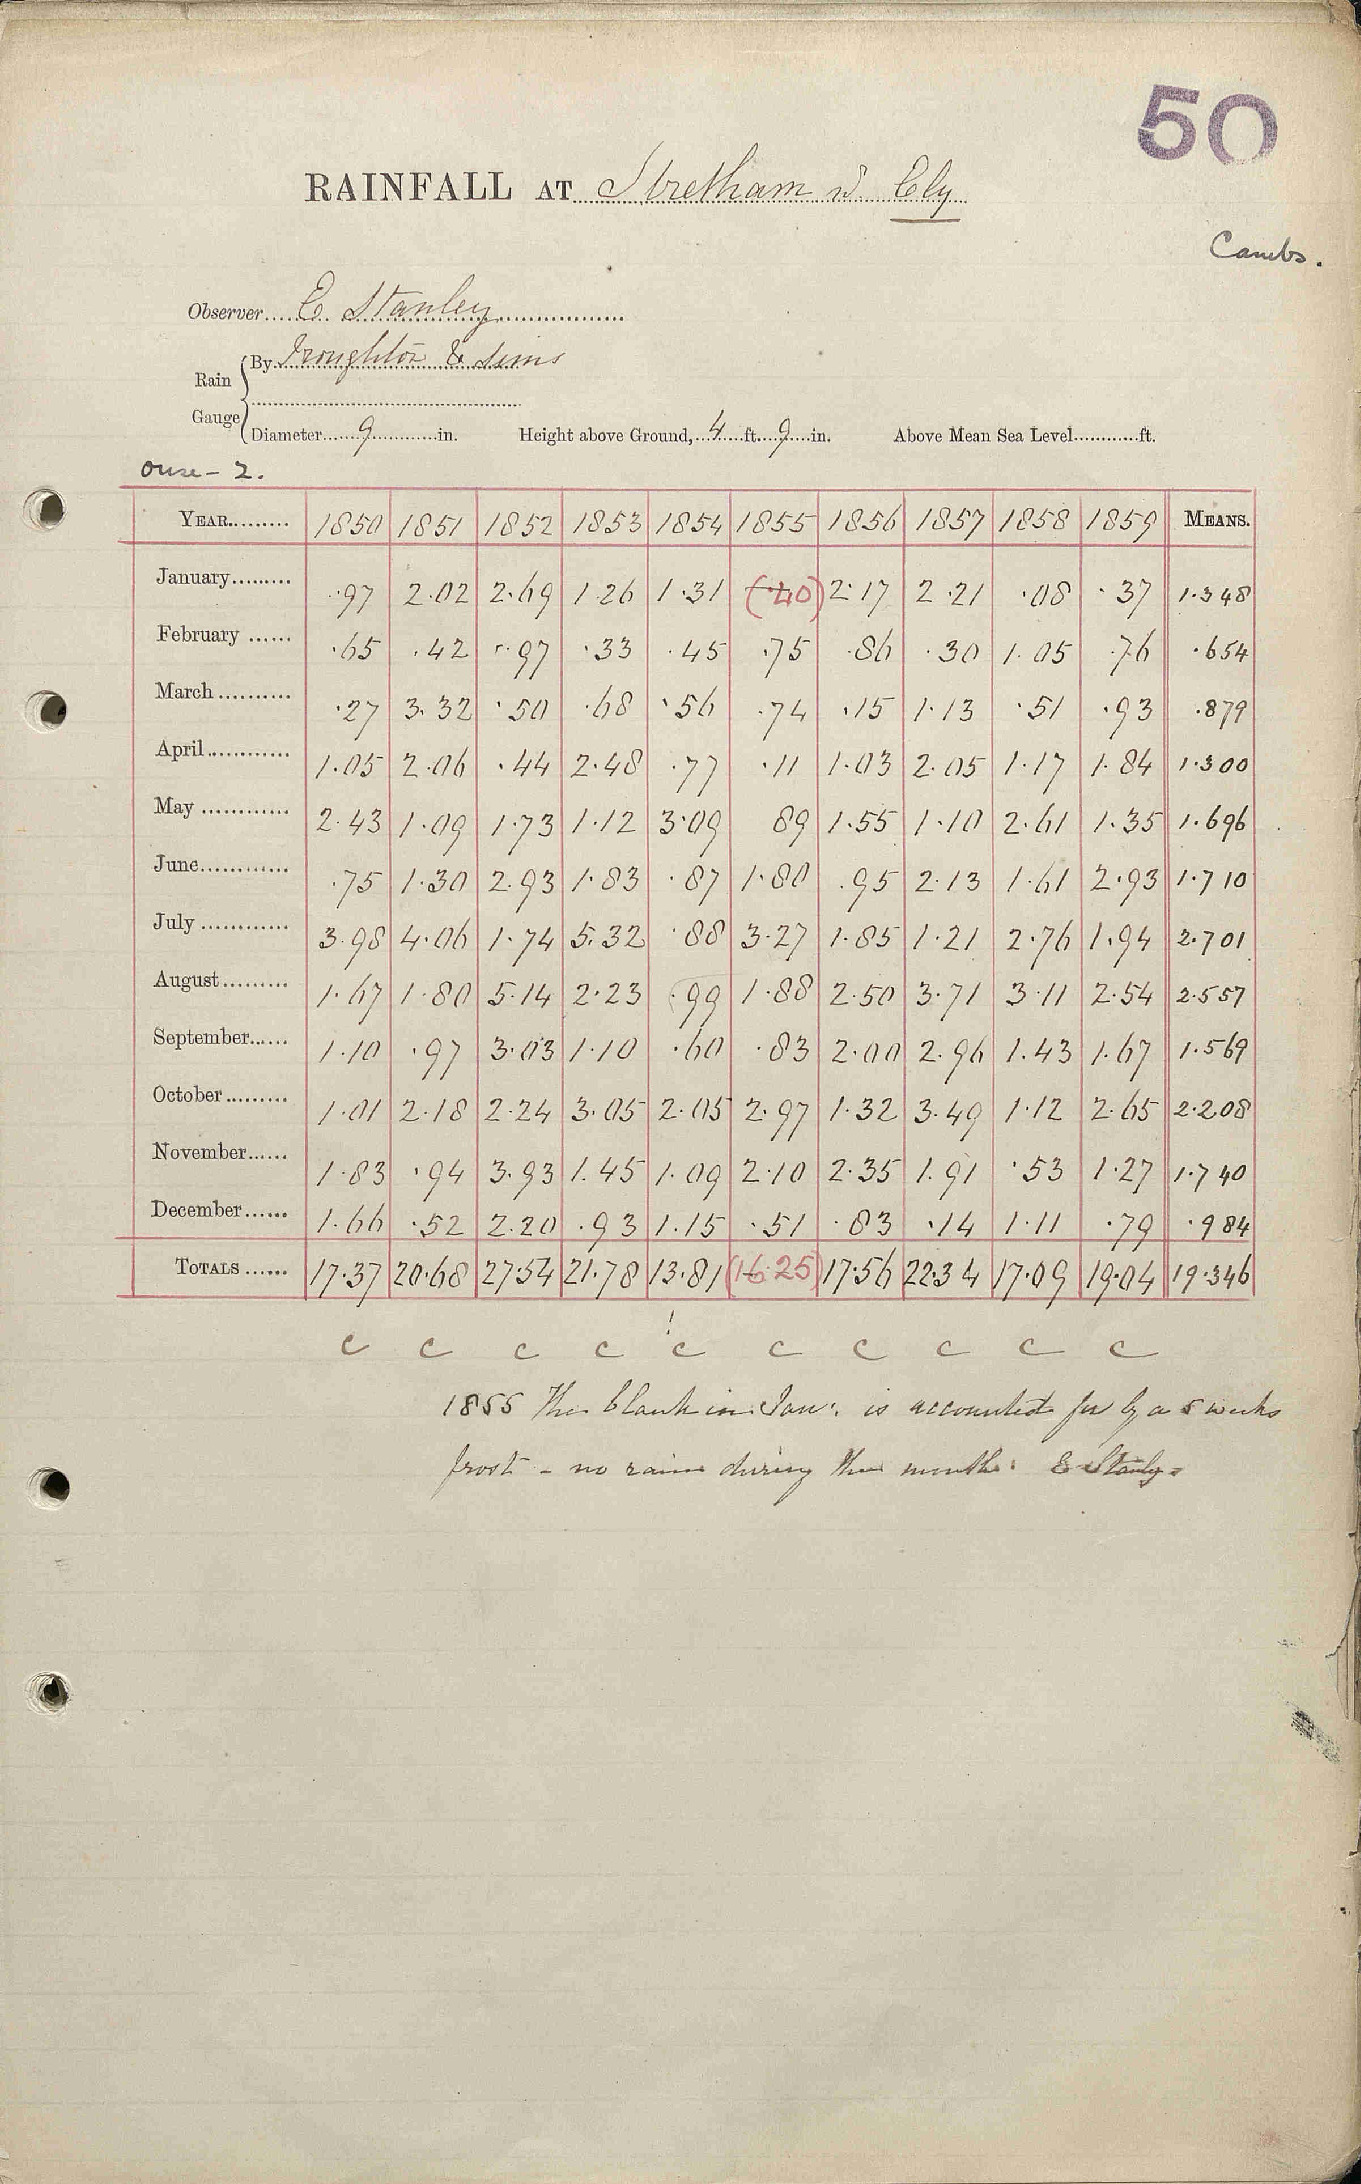 50
RAINFALL AT Stretham nr Ely
Cambs.
Observer E. Stanley
Rain Gauge By Troughton & Sims
Diameter 9 in. Height above Ground, 4 ft. 9 in. Above Mean Sea Level ft.
Ouse - 2.
YEAR 1850 1851 1852 1853 1854 1855 1856 1857 1858 1859 MEANS.
January .97 2.02 2.69 1.26 1.31 (.40) 2.17 2.21 .08 .37 1.348
February .65 .42 .97 .33 .45 .75 .86 .30 1.05 .76 .654
March .27 3.32 .50 .68 .56 .74 .15 1.13 .51 .93 .879
April 1.05 2.06 .44 2.48 .77 .11 1.03 2.05 1.17 1.84 1.300
May 2.43 1.09 1.73 1.12 3.09 89 1.55 1.10 2.61 1.35 1.696
June .75 1.30 2.93 1.83 .87 1.80 .95 2.13 1.61 2.93 1.710
July 3.98 4.06 1.74 5.32 .88 3.27 1.85 1.21 2.76 1.94 2.701
August 1.67 1.80 5.14 2.23 .99 1.88 2.50 3.71 3.11 2.54 2.557
September 1.10 .97 3.03 1.10 .60 .83 2.00 2.96 1.43 1.67 1.569
October 1.01 2.18 2.24 3.05 2.05 2.97 1.32 3.49 1.12 2.65 2.208
November 1.83 .94 3.93 1.45 1.09 2.10 2.35 1.91 .53 1.27 1.740
December 1.66 .52 2.20 .93 1.15 .51 .83 .14 1.11 .79 .984
TOTALS 17.37 20.68 27.54 21.78 13.81 (16.25) 17.56 22.34 17.09 19.04 19.346
c c c c c c c c c c
1855 The blank in Jan: is accounted for by a 5 weeks
frost - no rain during the month. E Stanley